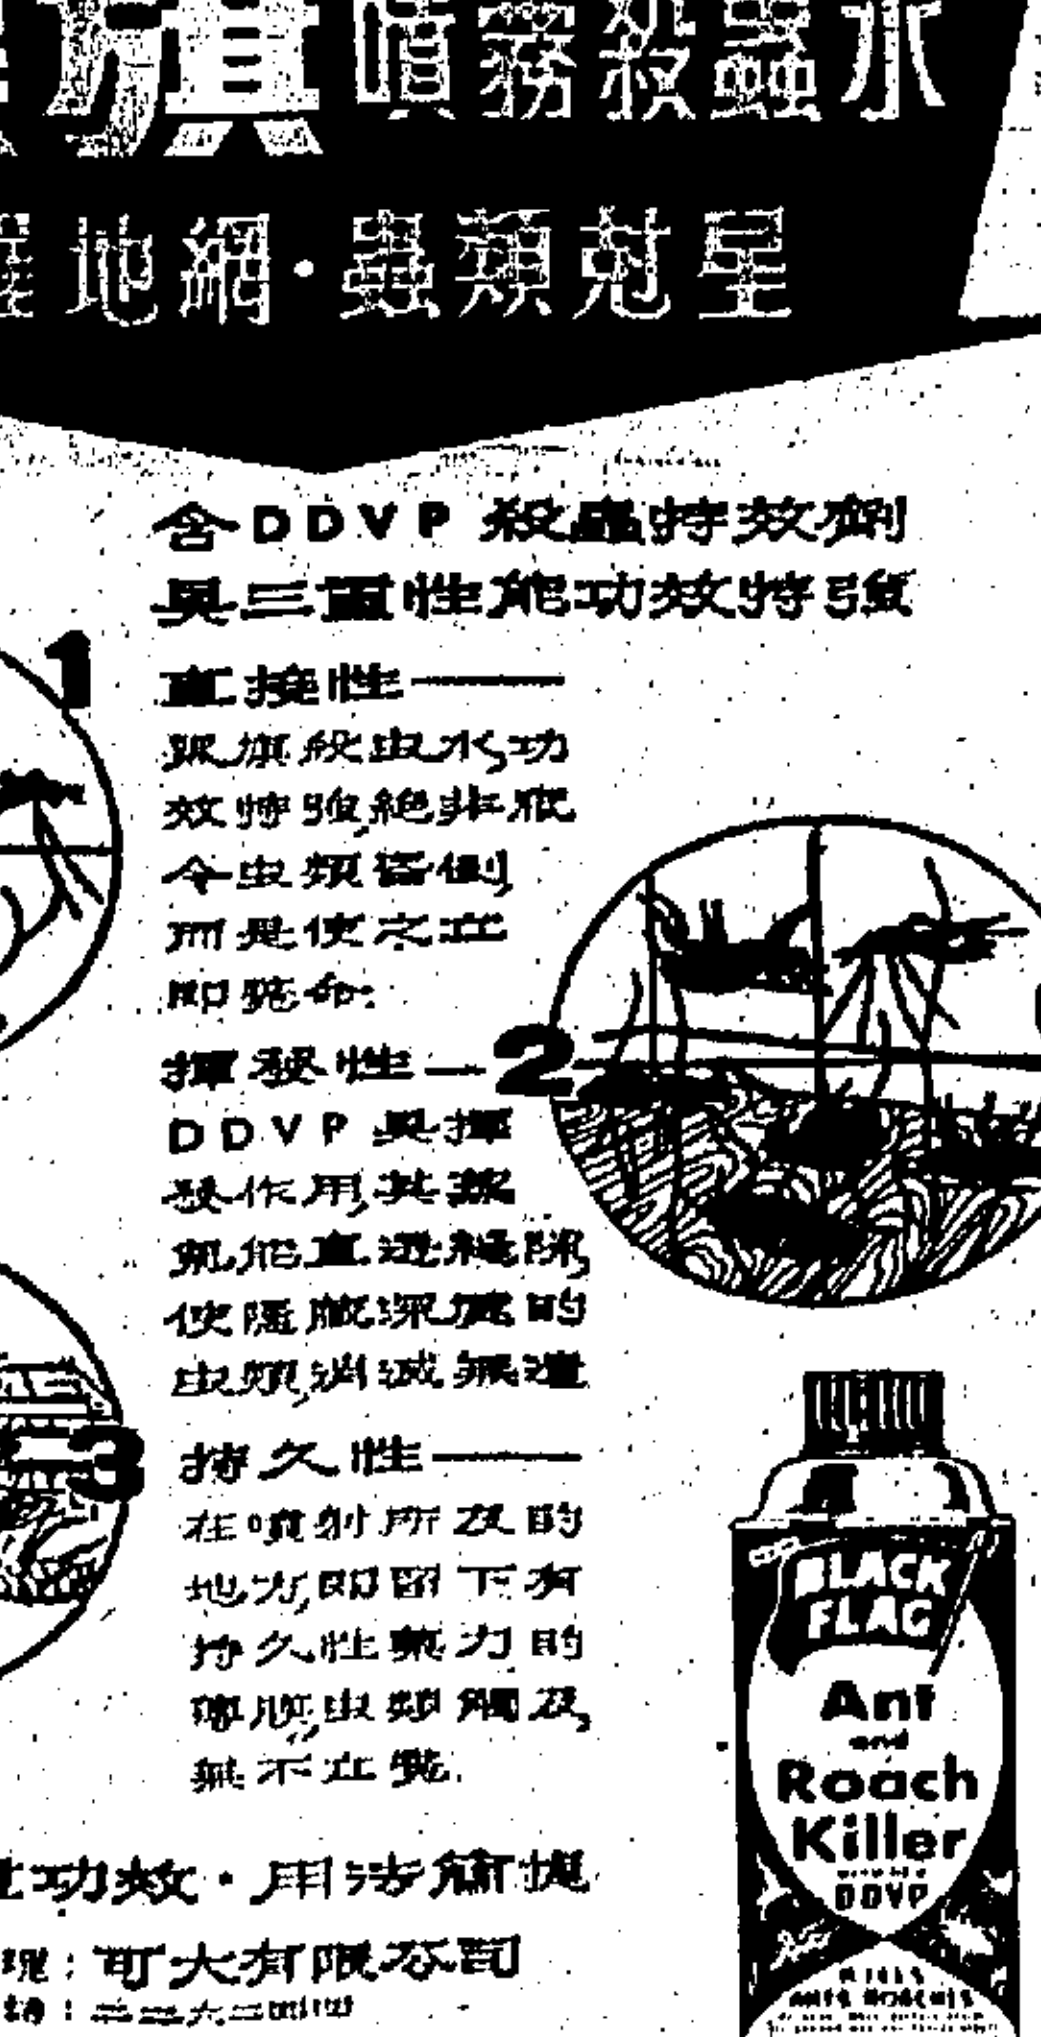 旗噴霧殺蟲水
羅地網·蟲類尅星
含DDVP殺蟲特效劑
具三重性能功效特強
1
直接性——
黑旗殺虫水,功
效特強,絕非祇
令虫類昏倒,
而是使之立
即斃命.
揮發性—2
DDVP具揮
發作用,其蒸
氣能直透縫隙,
使隱藏深處的
虫類,消滅無遺
3
持久性——
在噴射所及的
地方,即留下有
持久性藥力的
薄膜,虫類觸及,
無不立斃.
功效·用法簡捷
理:可大有限公司
BLACK
FLAG
Ant
and
Roach
Killer
DDVP
KILLS
ANTS ROACHES